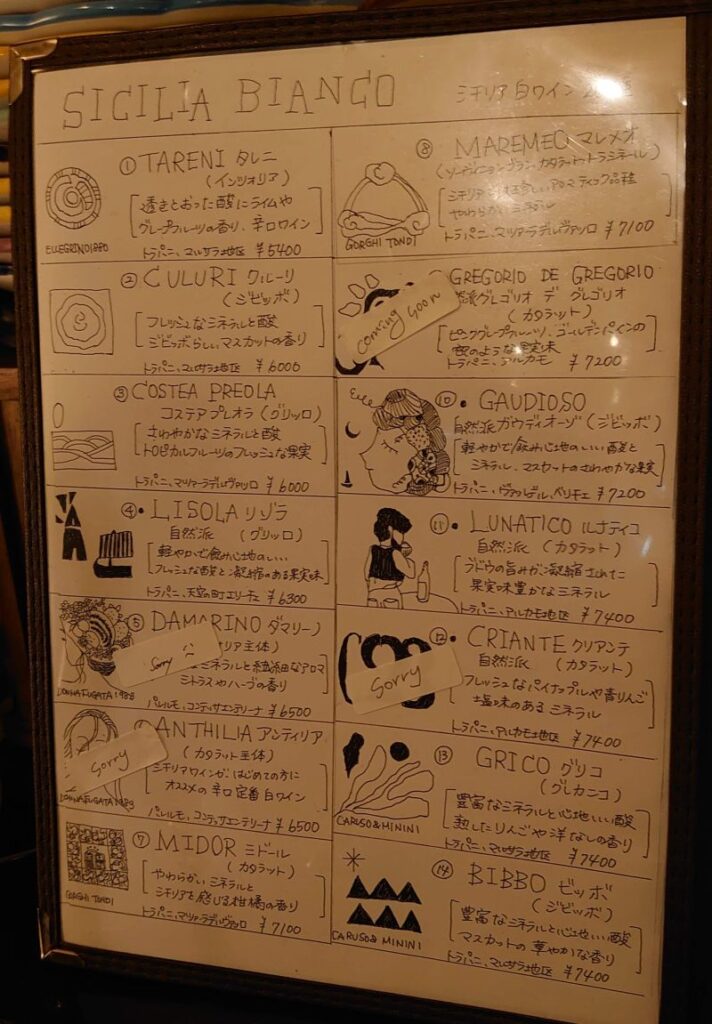 SICILIA BIANCO
シチリア 白ワイン
① TARENI タレニ
(インツォリア)
透きとおった酸にライムや
グレープフルーツの香り、辛口ワイン
ELLEGRINO 1880
トラパニ、マルサラ地区 ¥5400
② CULURI クルーリ
(ジビッボ)
フレッシュなミネラルと酸
ジビッボらしい、マスカットの香り
トラパニ、マルサラ地区 ¥6000
③ COSTEA PREOLA
コステア プレオラ (グリッロ)
さわやかなミネラルと酸
トロピカルフルーツのフレッシュな果実
トラパニ、マツァーラデルヴァッロ ¥6000
④・LISOLA リゾラ
自然派 (グリッロ)
軽やかで飲み心地のいい
フレッシュな酸と凝縮のある果実味
トラパニ、天空の町エリーチェ ¥6300
⑤ DAMARINO ダマリーノ
リア主体)
sorry
ミネラルと繊細なアロマ
シトラスやハーブの香り
DONNAFUGATA 1983
パレルモ、コンティッサエンテリーナ ¥6500
ANTHILIA アンティリア
(カタラット主体)
sorry
シチリアワインが、はじめての方に
オススメの辛口定番白ワイン
DONNAFUGATA 1983
パレルモ、コンティッサエンテリーナ ¥6500
⑦ MIDOR ミドール
(カタラット)
やわらかいミネラルと
シチリアを感じる柑橘の香り
GORGHI TONDI
トラパニ、マツァーラデルヴァッロ ¥7100
⑧ MAREMEO マレメオ
(ソーヴィニョンブラン、カタラット、トラミネール)
シチリアで アロマティック品種
やわらかいミネラル
GORGHI TONDI
トラパニ、マツァーラデルヴァッロ ¥7100
GREGORIO DE GREGORIO
然派 グレゴリオ デ グレゴリオ
(カタラット)
coming soon
ピンクグレープフルーツ、ゴールデンパインの
蜜のような果実味
トラパニ、アルカモ ¥7200
⑩・GAUDIOSO
自然派 ガウディオーゾ (ジビッボ)
軽やかで飲み心地のいい酸と
ミネラル、マスカットのさわやかな果実
トラパニ、ヴァッレデル・ベリチェ ¥7200
⑪・LUNATICO ルナティコ
自然派 (カタラット)
ブドウの旨みが凝縮された
果実味豊かなミネラル
トラパニ、アルカモ地区 ¥7400
⑫・CRIANTE クリアンテ
自然派 (カタラット)
sorry
フレッシュなパイナップルや青りんご
塩味のあるミネラル
トラパニ、アルカモ地区 ¥7400
⑬ GRICO グリコ
(グレカニコ)
豊富なミネラルと心地いい酸
熟したりんごや洋なしの香り
CARUSO & MININI
トラパニ、マルサラ地区 ¥7400
⑭ BIBBO ビッボ
(ジビッボ)
豊富なミネラルと心地いい酸
マスカットの華やかな香り
CARUSO & MININI
トラパニ、マルサラ地区 ¥7400